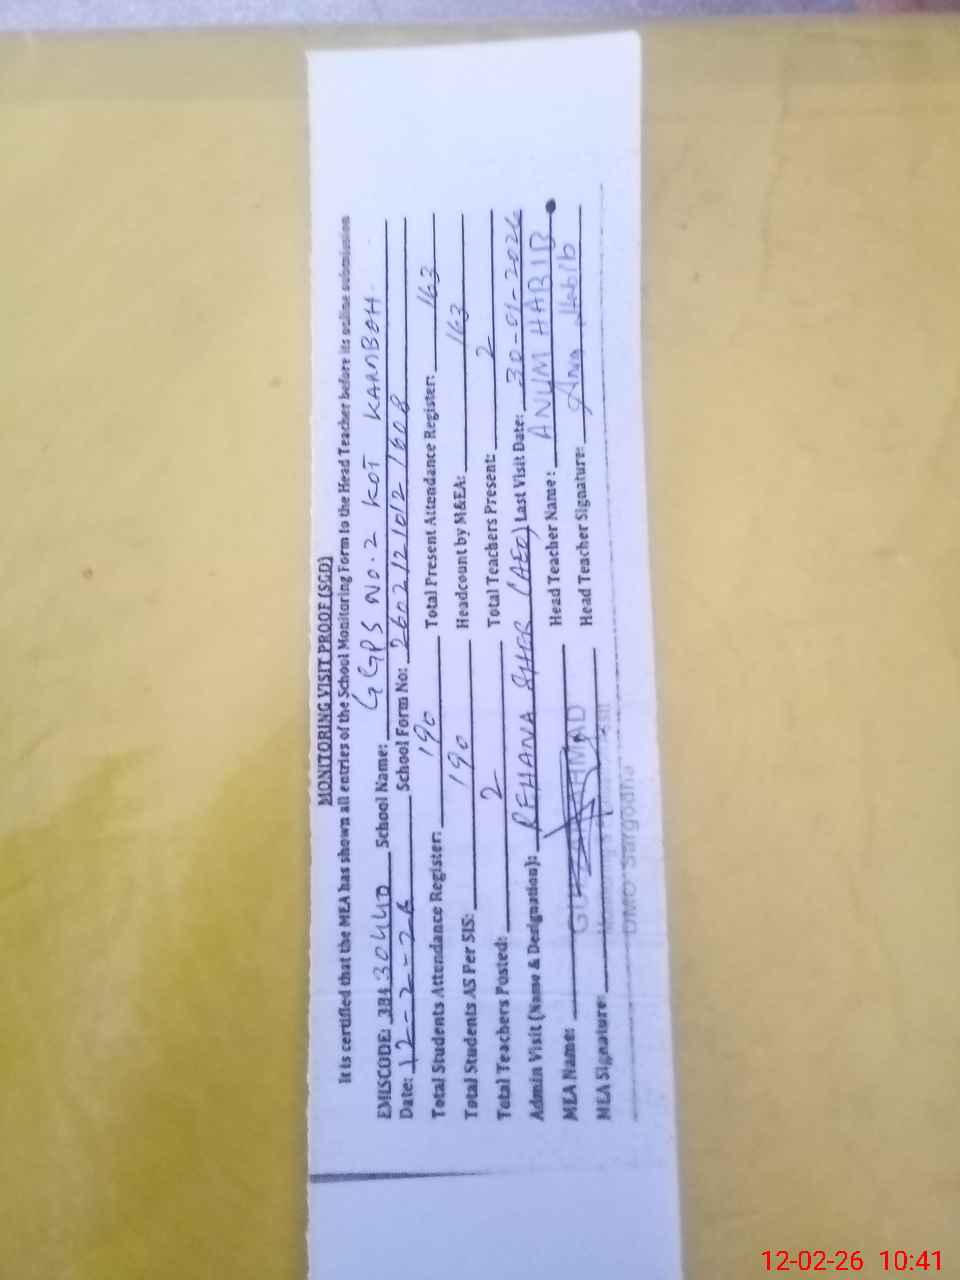 MONITORING VISIT PROOF (SGD)
It is certified that the MEA has shown all entries of the School Monitoring Form to the Head Teacher before its online submission
EMISCODE: 38430440 School Name: GGPS NO.2 KOT KAMBOH.
Date: 12-2-26 School Form No: 26021210121608
Total Students Attendance Register: 190 Total Present Attendance Register: 163
Total Students AS Per SIS: 190 Headcount by M&EA: 163
Total Teachers Posted: 2 Total Teachers Present: 2
Admin Visit (Name & Designation): REHANA SHER (AEO) Last Visit Date: 30-01-2026
MEA Name: AHMAD Head Teacher Name: ANUM HABIB
MEA Signature: Head Teacher Signature: Habib
DMO Sargodha
12-02-26 10:41